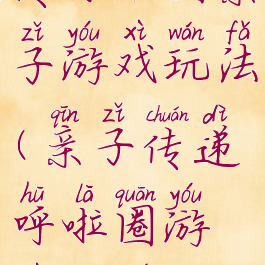 zǐ yóu xì wán fǎ
子游戏玩法
qīn zǐ chuán dì
(亲子传递
hū lā quān yóu
呼啦圈游